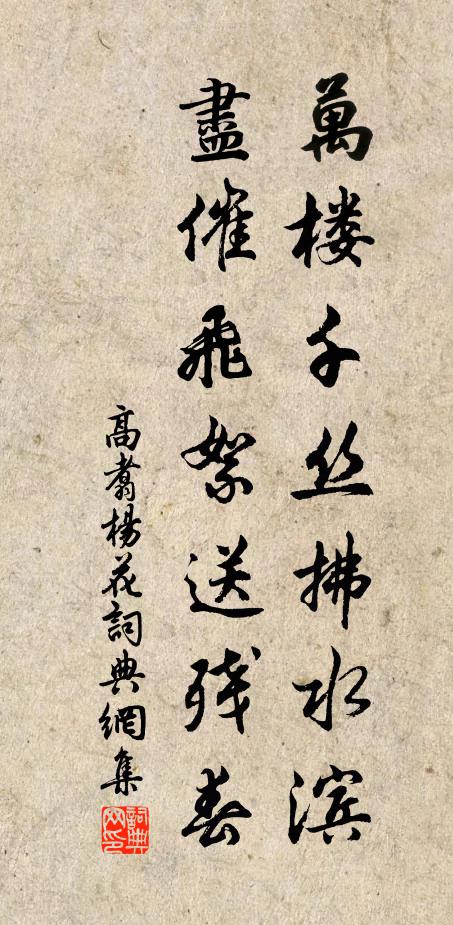 萬楼千丝拂水滨
盡催飛絮送残春
高翥楊花詞典網集
詞典網印